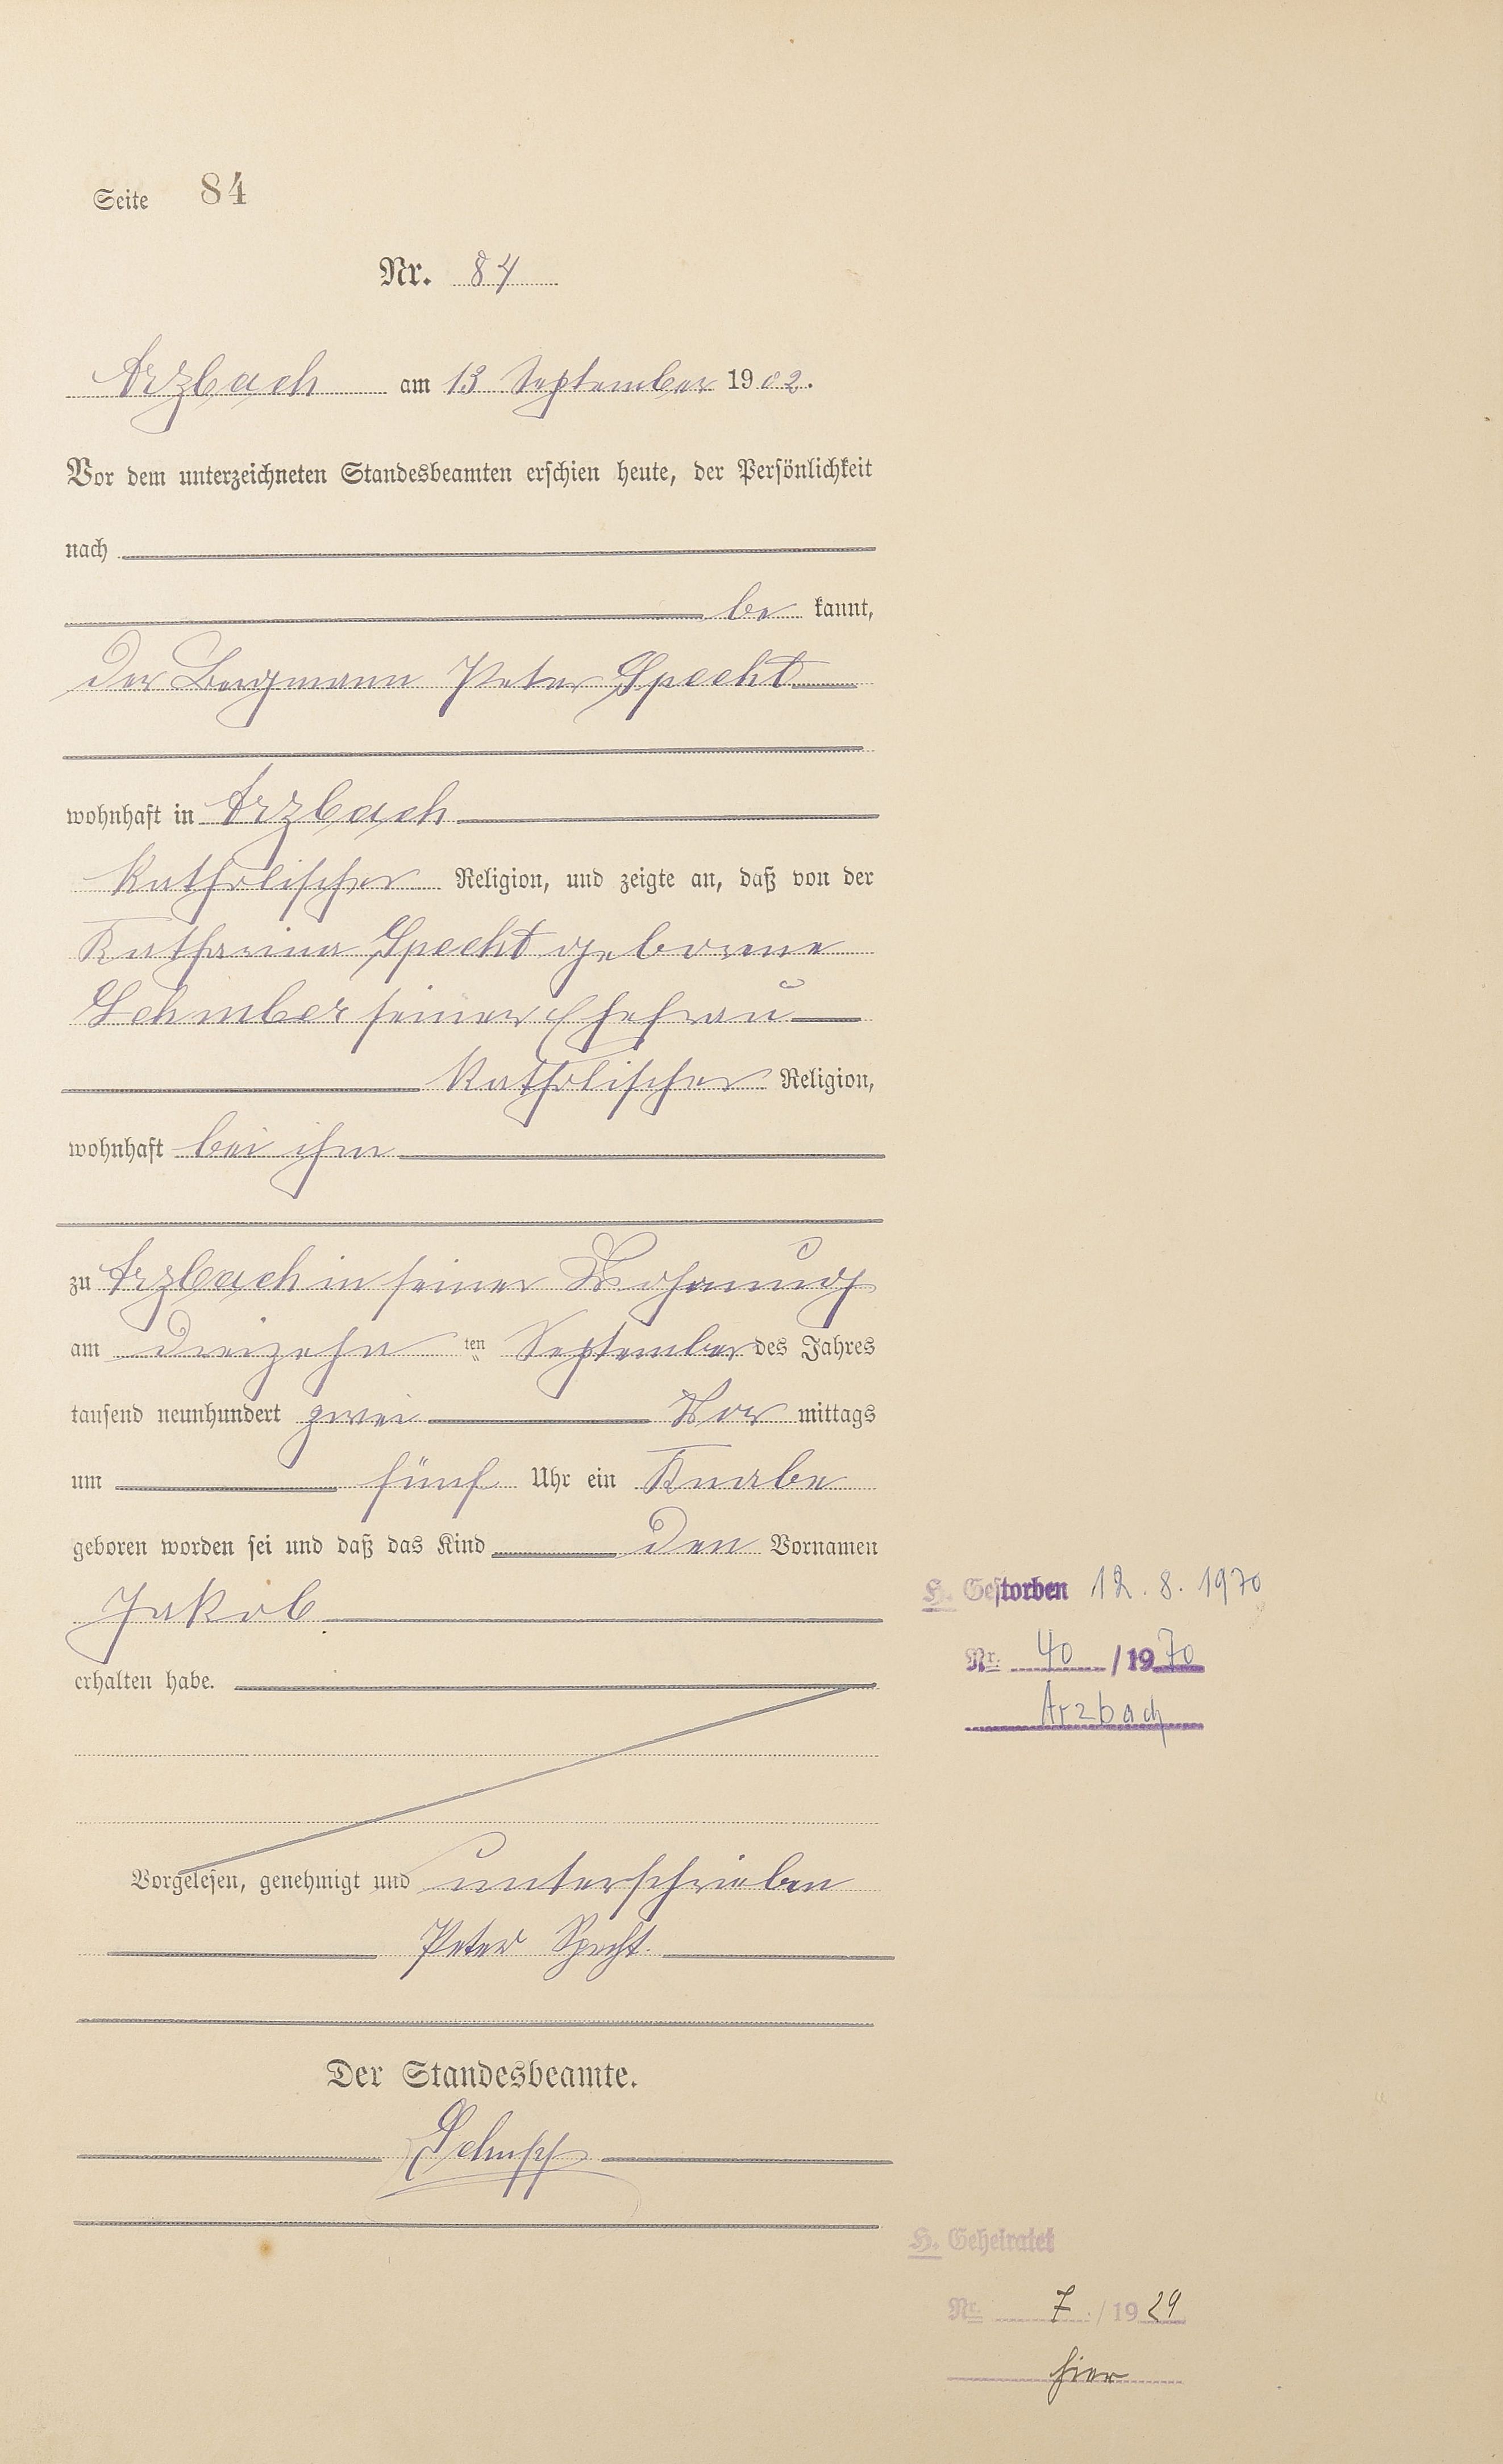 Seite 84
Nr. 84
Arzbach am 13 September 1902.
Vor dem unterzeichneten Standesbeamten erschien heute, der Persönlichkeit
nach
be kannt,
der Bergmann Peter Specht
wohnhaft in Arzbach
katholischer Religion, und zeigte an, daß von der
Katharina Specht geborene
Schmber seiner Ehefrau
katholischer Religion,
wohnhaft bei ihm
zu Arzbach in seiner Wohnung
am dreizehn ten September des Jahres
tausend neunhundert zwei Vor mittags
um fünf Uhr ein Knabe
geboren worden sei und daß das Kind den Vornamen
Jakob
erhalten habe.
Vorgelesen, genehmigt und unterschrieben
Peter Specht.
Der Standesbeamte.
Schupp
H. Gestorben 12.8.1970
Nr. 40 / 1970
Arzbach
H. Geheiratet
Nr. 7 / 1929
hier